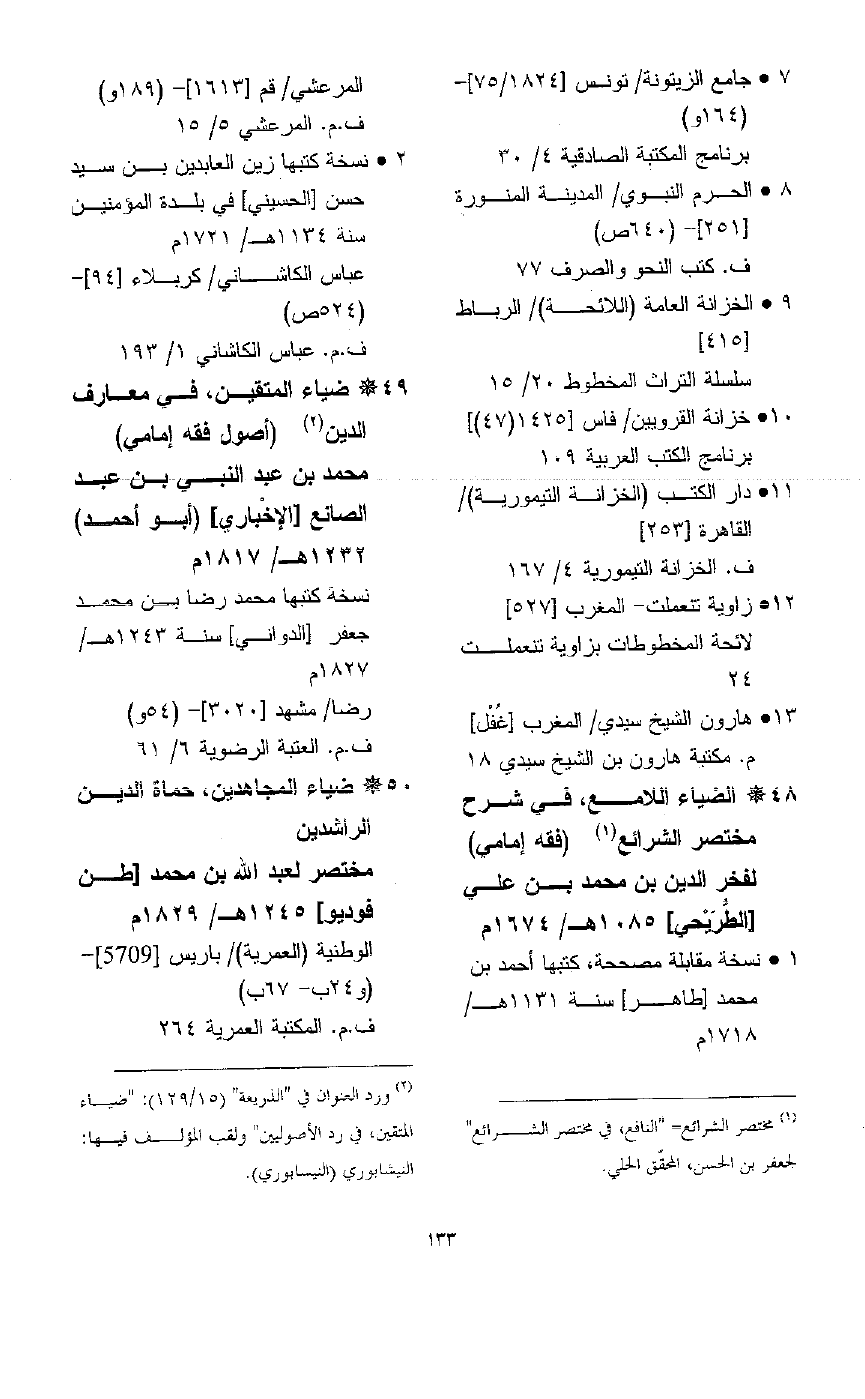 ٧ • جامع الزيتونة/ تونس [٧٥/١٨٢٤]-
(١٦٤و)
برنامج المكتبة الصادقية ٤/ ٣٠
٨ • الحرم النبوي/ المدينة المنورة
[٢٥١]- (٦٤٠ص)
ف. كتب النحو والصرف ٧٧
٩ • الخزانة العامة (اللائحة)/ الرباط
[٤١٥]
سلسلة التراث المخطوط ٢٠/ ١٥
١٠• خزانة القرويين/ فاس [١٤٢٥(٤٧)]
برنامج الكتب العربية ١٠٩
١١• دار الكتب (الخزانة التيمورية)/
القاهرة [٢٥٣]
ف. الخزانة التيمورية ٤/ ١٦٧
١٢• زاوية تنعملت- المغرب [٥٢٧]
لائحة المخطوطات بزاوية تنعملت
٢٤
١٣• هارون الشيخ سيدي/ المغرب [غُفْل]
م. مكتبة هارون بن الشيخ سيدي ١٨
٤٨❋ الضياء اللامع، في شرح
مختصر الشرائع(١) (فقه إمامي)
لفخر الدين بن محمد بن علي
[الطُّرَيْحي] ١٠٨٥هـ/ ١٦٧٤م
١ • نسخة مقابلة مصححة، كتبها أحمد بن
محمد [طاهر] سنة ١١٣١هـ/
١٧١٨م
(١) مختصر الشرائع= "النافع، في مختصر الشرائع"
لجعفر بن الحسن، المحقّق الحلي.
المرعشي/ قم [١٦١٣]- (١٨٩و)
ف.م. المرعشي ٥/ ١٥
٢ • نسخة كتبها زين العابدين بن سيد
حسن [الحسيني] في بلدة المؤمنين
سنة ١١٣٤هـ/ ١٧٢١م
عباس الكاشاني/ كربلاء [٩٤]-
(٥٢٤ص)
ف.م. عباس الكاشاني ١/ ١٩٣
٤٩❋ ضياء المتقين، في معارف
الدين(٢) (أصول فقه إمامي)
محمد بن عبد النبي بن عبد
الصانع [الإخْباري] (أبو أحمد)
١٢٣٢هـ/ ١٨١٧م
نسخة كتبها محمد رضا بن محمد
جعفر [الدواني] سنة ١٢٤٣هـ/
١٨٢٧م
رضا/ مشهد [٣٠٢٠]- (٥٤و)
ف.م. العتبة الرضوية ٦/ ٦١
٥٠❋ ضياء المجاهدين، حماة الدين
الراشدين
مختصر لعبد الله بن محمد [طن
فوديو] ١٢٤٥هـ/ ١٨٢٩م
الوطنية (العمرية)/ باريس [5709]-
(و٢٤ب- ٦٧ب)
ف.م. المكتبة العمرية ٢٦٤
(٢) ورد العنوان في "الذريعة" (١٢٩/١٥): "ضياء
المتقين، في رد الأصوليين" ولقب المؤلف فيها:
النيشابوري (النيسابوري).
١٣٣